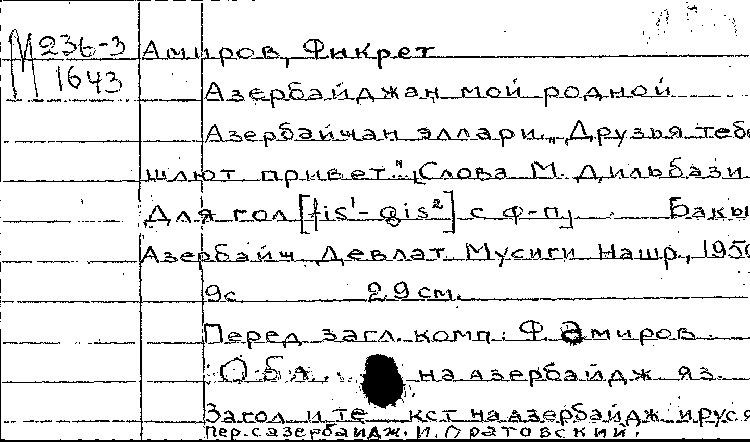 М 236-3 Амиров, Фикрет
1643
Азербайджан мой родной
Азербайчан эллари. „Друзья тебе
шлют привет". Слова М. Дильбази
Для гол [fis¹-gis²] с ф-п. Бакы
Азербайч Девлат Мусиги Нашр., 1956
9с 29 см.
Перед загл. комп: Ф. Әмиров.
Обл. на азербайдж яз.
Загол и текст на азербайдж и руся
пер. с азербайдж. И. Оратовский.